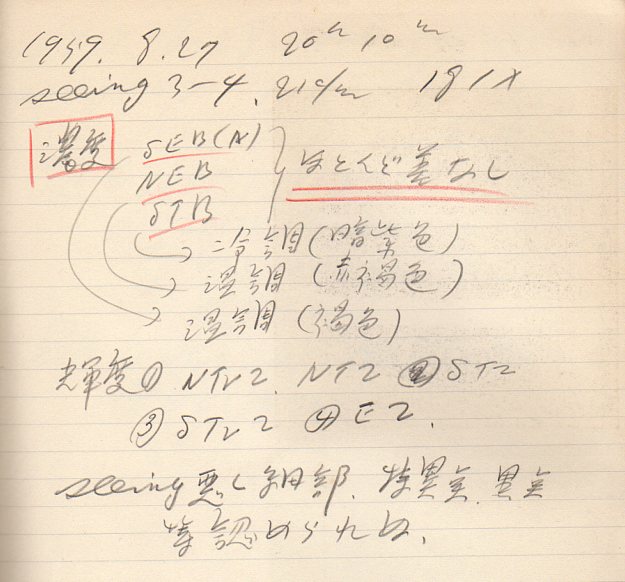 1959. 8.27 20h 10m
seeing 3-4. 21cm 181×
濃度 SEB(N)
NEB ほとんど差なし
STB
冷調(暗紫色)
温調(赤褐色)
温調(褐色)
光輝度① NTrZ. NTZ ② STZ
③ STrZ ④ EZ.
seeing悪く細部、特異点、異点
等認められれず.